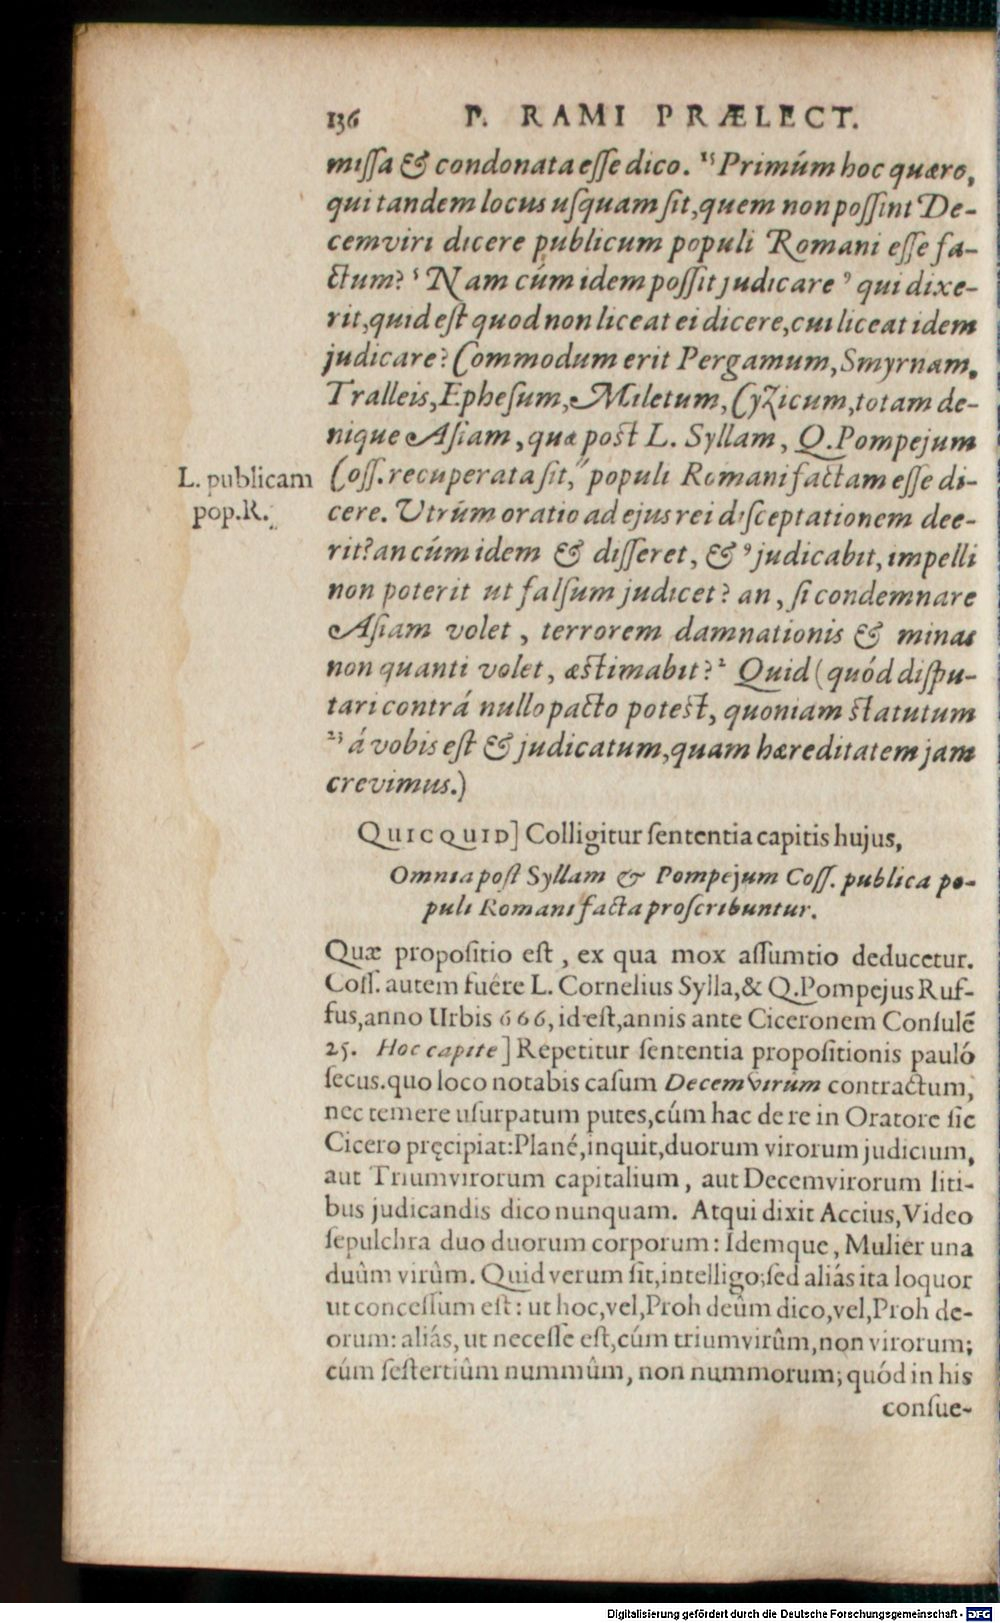 136 P. RAMI PRÆLECT.
missa & condonata esse dico. ¹⁵ Primúm hoc quæro,
qui tandem locus usquam sit, quem non possint De-
cemviri dicere publicum populi Romani esse fa-
ctum? ⁵ Nam cúm idem possit judicare ⁹ qui dixe-
rit, quid est quod non liceat ei dicere, cui liceat idem
judicare? Commodum erit Pergamum, Smyrnam,
Tralleis, Ephesum, Miletum, Cyzicum, totam de-
nique Asiam, quæ post L. Syllam, Q. Pompejum
L. publicam
pop. R.
Coss. recuperata sit, " populi Romani factam esse di-
cere. Utrúm oratio ad ejus rei disceptationem dee-
rit? an cúm idem & disseret, & ⁹ judicabit, impelli
non poterit ut falsum judicet? an, si condemnare
Asiam volet, terrorem damnationis & minas
non quanti volet, æstimabit? ² Quid (quód dispu-
tari contrá nullo pacto potest, quoniam statutum
²³ á vobis est & judicatum, quam hæreditatem jam
crevimus.)
QUICQUID] Colligitur sententia capitis hujus,
Omnia post Syllam & Pompejum Coss. publica po-
puli Romani facta proscribuntur.
Quæ propositio est, ex qua mox assumtio deducetur.
Coss. autem fuêre L. Cornelius Sylla, & Q. Pompejus Ruf-
fus, anno Urbis 666, id est, annis ante Ciceronem Consulē
25. Hoc capite] Repetitur sententia propositionis pauló
secus. quo loco notabis casum Decemvirúm contractum,
nec temere usurpatum putes, cúm hac de re in Oratore sic
Cicero pręcipiat: Plané, inquit, duorum virorum judicium,
aut Triumvirorum capitalium, aut Decemvirorum liti-
bus judicandis dico nunquam. Atqui dixit Accius, Video
sepulchra duo duorum corporum: Idemque, Mulier una
duûm virûm. Quid verum sit, intelligo; sed aliás ita loquor
ut concessum est: ut hoc, vel, Proh deûm dico, vel, Proh de-
orum: aliás, ut necesse est, cúm triumvirûm, non virorum;
cúm sestertiûm nummûm, non nummorum; quód in his
consue-
Digitalisierung gefördert durch die Deutsche Forschungsgemeinschaft - DFG